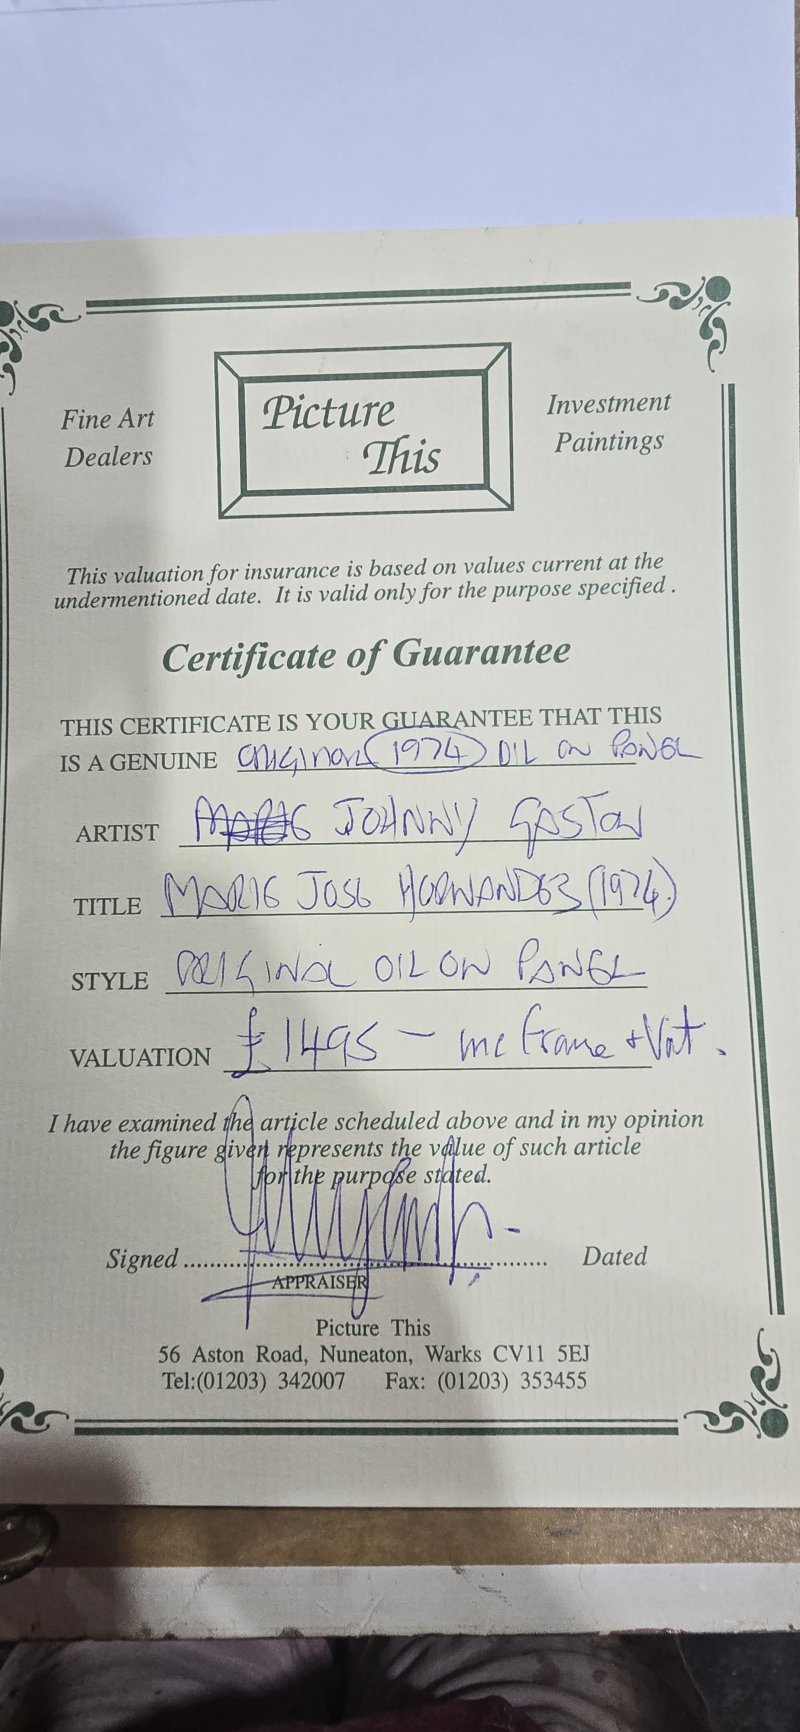 Fine Art
Dealers
Picture
This
Investment
Paintings
This valuation for insurance is based on values current at the
undermentioned date. It is valid only for the purpose specified.
Certificate of Guarantee
THIS CERTIFICATE IS YOUR GUARANTEE THAT THIS
IS A GENUINE ORIGINAL (1974) OIL ON PANEL
ARTIST JOHNNY GASTON
TITLE MARIE JOSE HERNANDEZ (1974)
STYLE ORIGINAL OIL ON PANEL
VALUATION £1495 – inc frame + Vat.
I have examined the article scheduled above and in my opinion
the figure given represents the value of such article
for the purpose stated.
Signed .......... Dated
APPRAISER
Picture This
56 Aston Road, Nuneaton, Warks CV11 5EJ
Tel:(01203) 342007 Fax: (01203) 353455